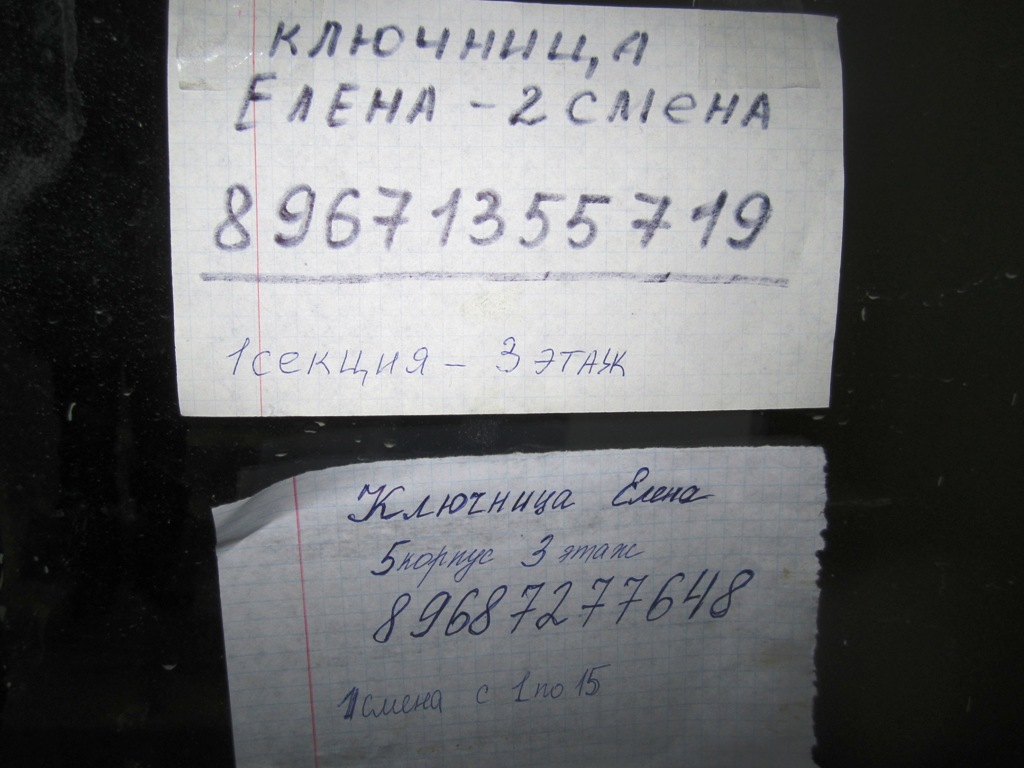 КЛЮЧНИЦА
ЕЛЕНА - 2 СМЕНА
89671355719
1 СЕКЦИЯ - 3 ЭТАЖ
Ключница Елена
5 корпус 3 этаж
89687277648
1 смена с 1 по 15